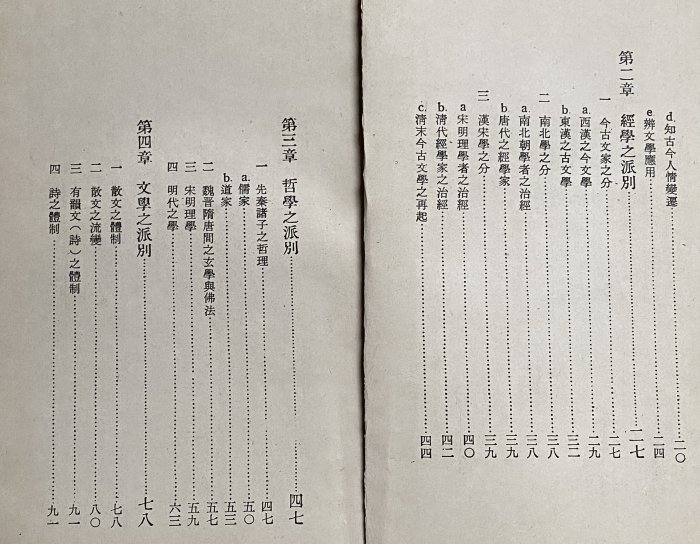 d. 知古今人情變遷……二〇
e 辨文學應用……二四
第二章 經學之派別……二七
一 今古文家之分……二七
a. 西漢之今文學……二九
b. 東漢之古文學……三二
二 南北學之分……三八
a. 南北朝學者之治經……三八
b. 唐代之經學家……三九
三 漢宋學之分……三九
a 宋明理學者之治經……四〇
b. 清代經學家之治經……四二
c. 清末今古文學之再起……四四
第三章 哲學之派別……四七
一 先秦諸子之哲理……四七
a. 儒家……五〇
b. 道家……五三
二 魏晉隋唐間之玄學與佛法……五七
三 宋明理學……五九
四 明代之學……六三
第四章 文學之派別……七八
一 散文之體制……七八
二 散文之流變……八〇
三 有韻文(詩)之體制……九一
四 詩之體制……九一